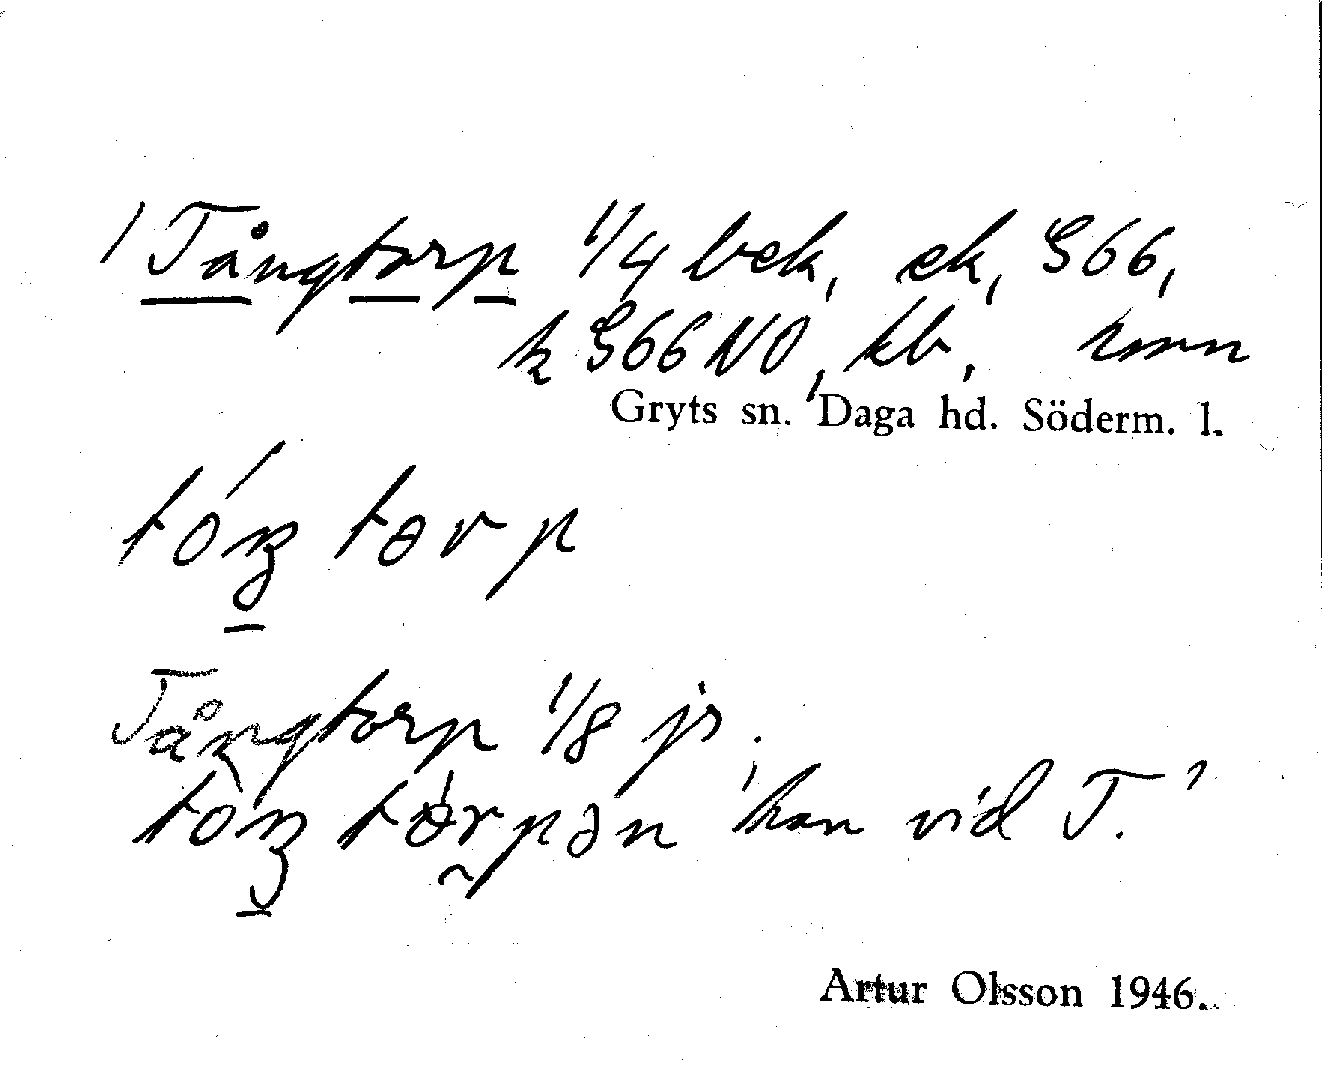 / Tångtorp 1/4 bek, ek, S66,
k S66NO, kb,
Gryts sn. Daga hd. Söderm. l.
tóŋ tɵrp
Tångtorp 1/8 jr.
tòŋ tɵ́rpən 'han vid T.'
Artur Olsson 1946.